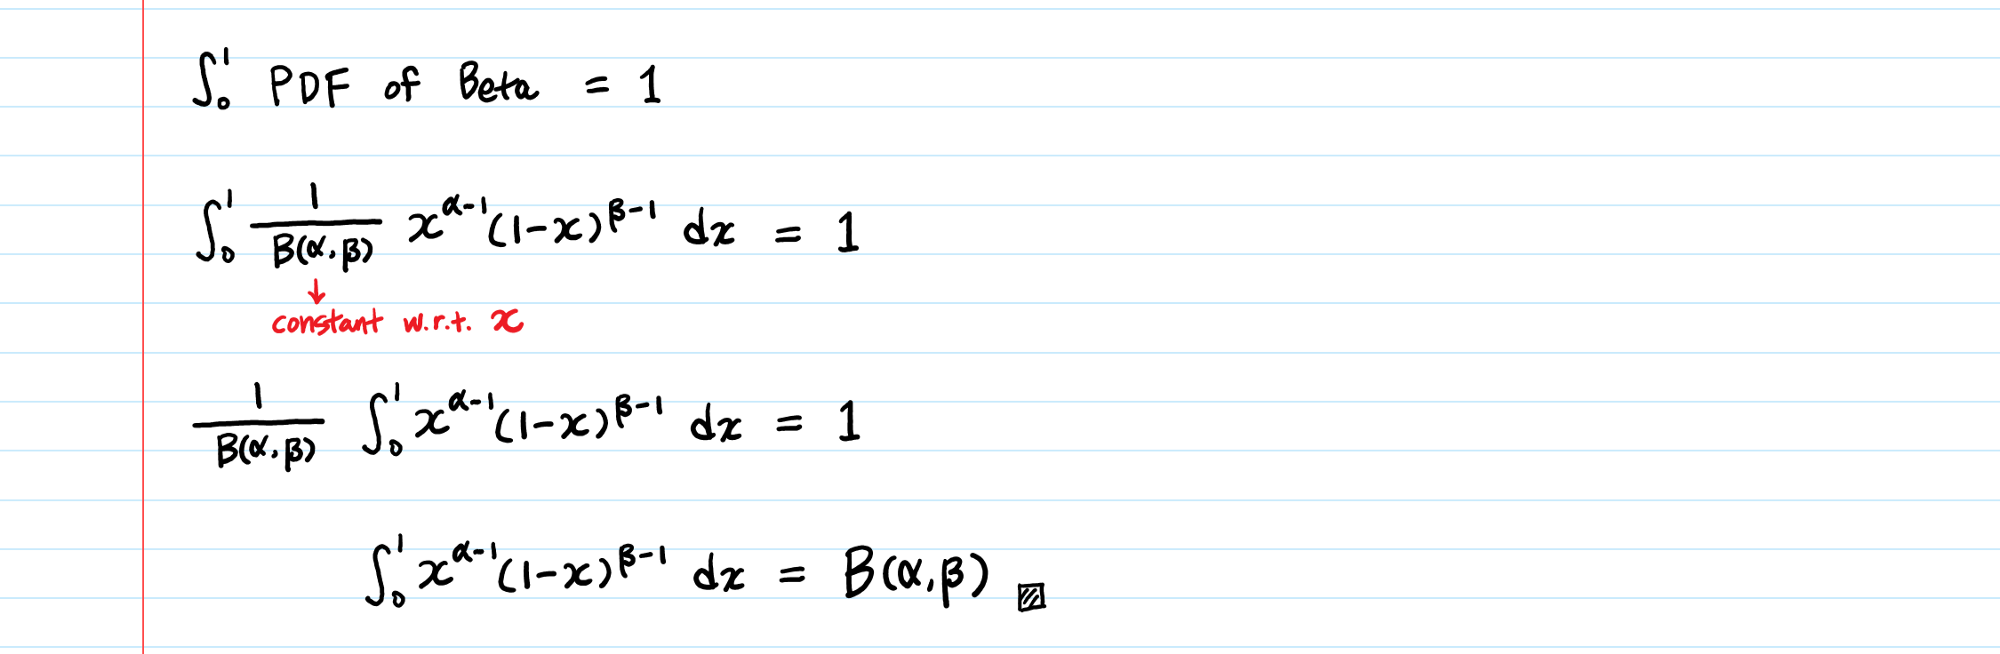 ∫₀¹ PDF of Beta = 1
∫₀¹ 1/B(α,β) x^(α-1) (1-x)^(β-1) dx = 1
↓
constant w.r.t. x
1/B(α,β) ∫₀¹ x^(α-1) (1-x)^(β-1) dx = 1
∫₀¹ x^(α-1) (1-x)^(β-1) dx = B(α,β) ▨